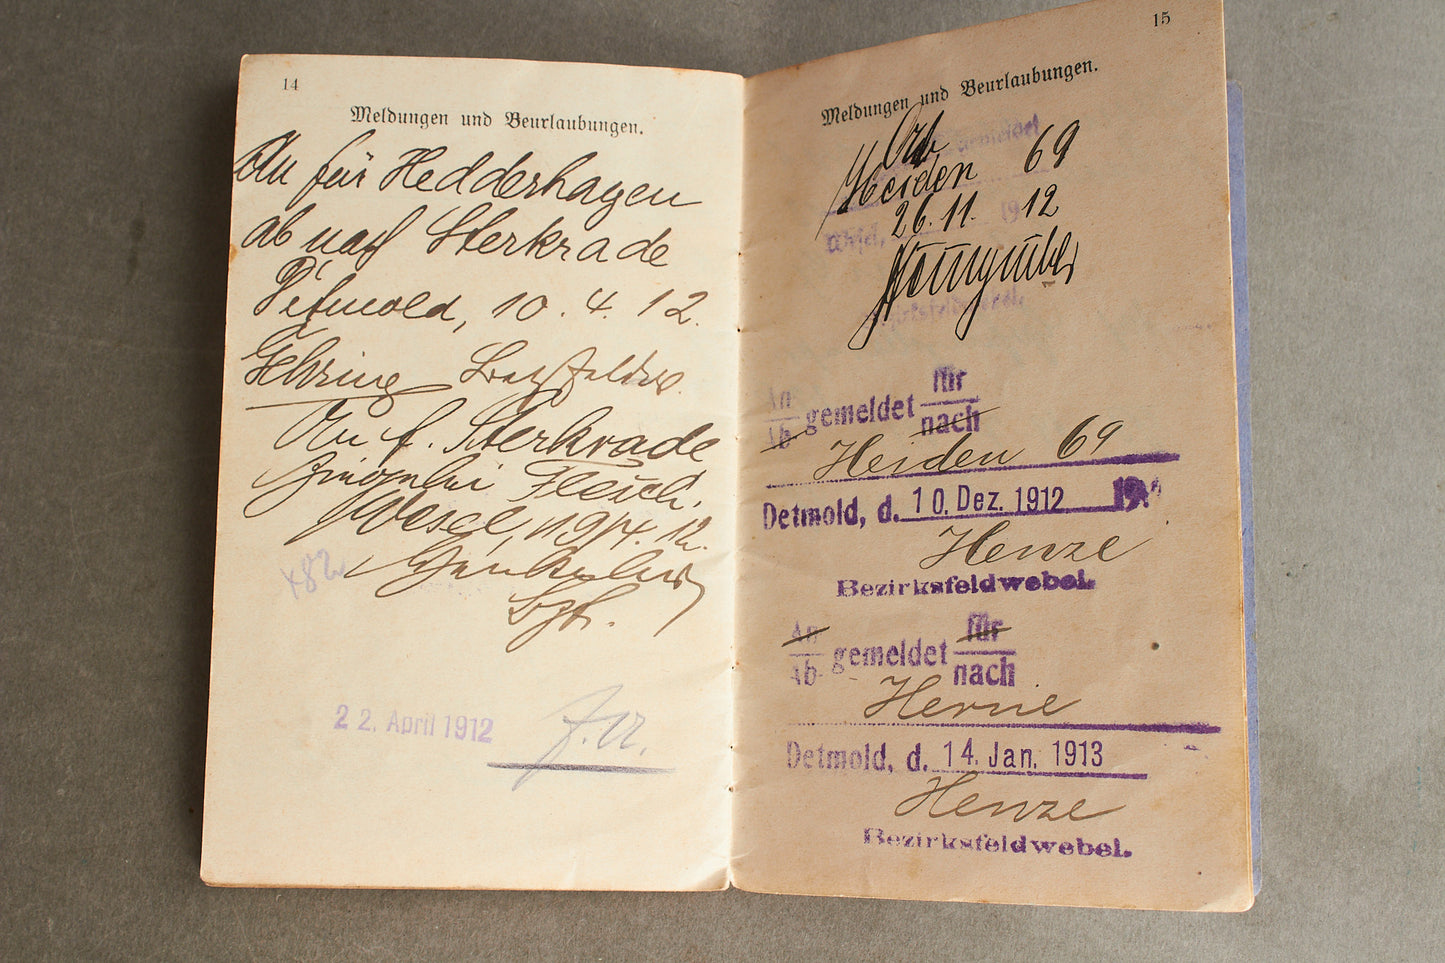 14
Meldungen und Beurlaubungen.
An für Hedderhagen
ab nach Sterkrade
Detmold, 10. 4. 12.
Gehring
An f. Sterkrade
Wesel, 19/4. 12.
Bzf.
22. April 1912
15
Meldungen und Beurlaubungen.
Ab gemeldet
Heiden 69
Wesel, 26.11. 1912
Bezirksfeldwebel.
An
Ab gemeldet für
nach
Heiden 69
Detmold, d. 10. Dez. 1912 19
Henze
Bezirksfeldwebel.
An
Ab gemeldet für
nach
Herne
Detmold, d. 14. Jan. 1913
Henze
Bezirksfeldwebel.